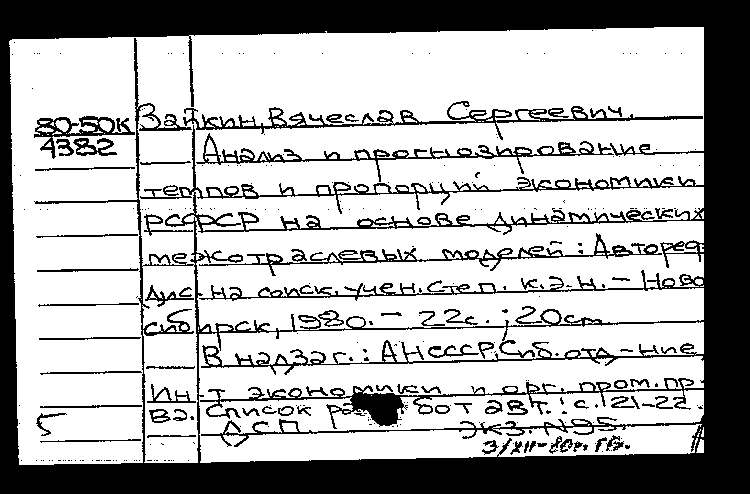 80-50К Зайкин, Вячеслав Сергеевич.
4382 Анализ и прогнозирование
темпов и пропорций экономики
РСФСР на основе динамических
межотраслевых моделей : Автореф.
дис. на соиск. учен. степ. к.э.н. – Ново
сибирск, 1980. – 22с. ; 20см
В надзаг.: АН СССР, Сиб. отд-ние,
Ин-т экономики и орг. пром. пр-
ва. Список работ авт.: с. 21-22
5 ДСП. ЭКЗ. N95.
3/XII-80г. ГВ.